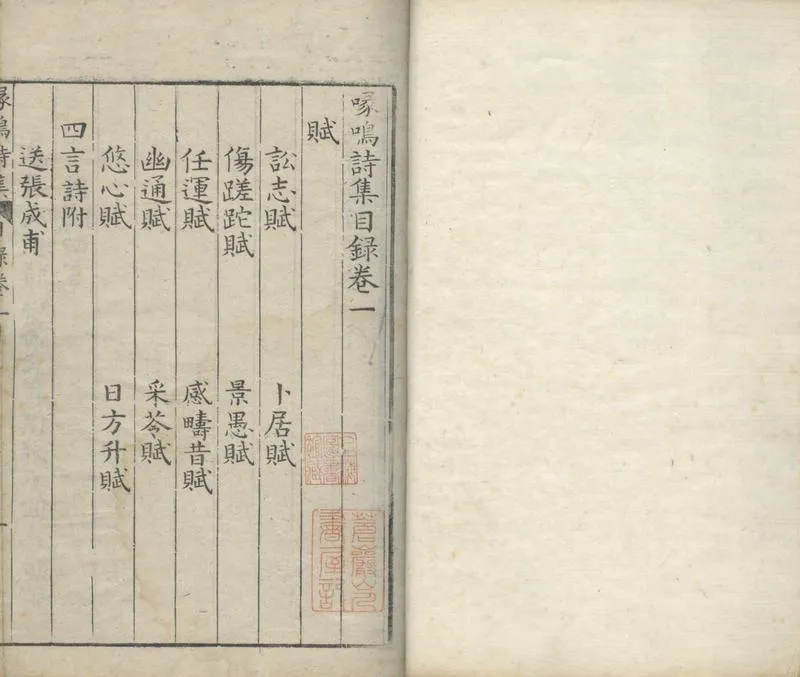 喙鳴詩集目録卷一
賦
訟志賦 卜居賦
傷蹉跎賦 景愚賦
任運賦 感疇昔賦
幽通賦 采苓賦
悠心賦 日方升賦
四言詩附
送張成甫
喙鳴詩集 目録卷一
蒼巖山人
書屋記